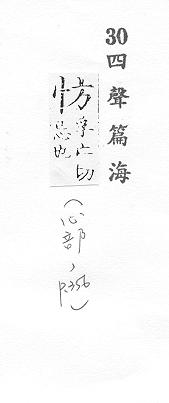 30 四聲篇海
㤃 孚亡切
忌也
(心部, p.356)